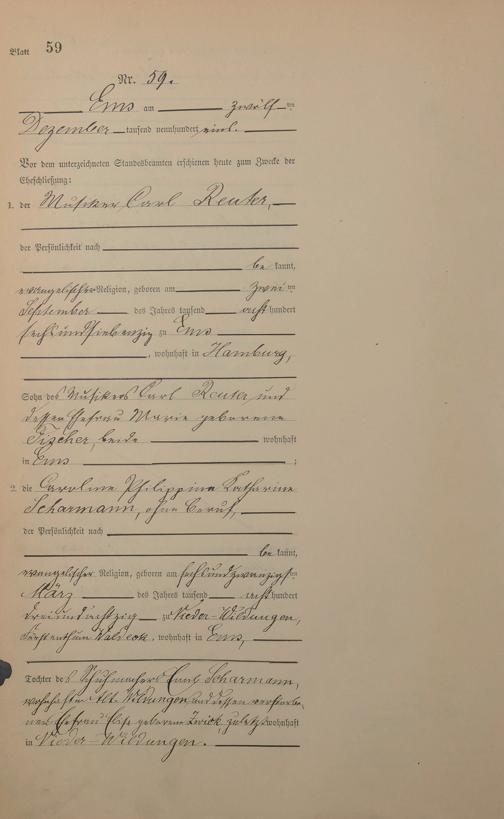 Blatt 59
Nr. 59.
Ems am zwölf ten
Dezember tausend neunhundert eins.
Vor dem unterzeichneten Standesbeamten erschienen heute zum Zwecke der
Eheschließung:
1. der Musiker Carl Reuter,
der Persönlichkeit nach
be kannt,
evangelischer Religion, geboren am zwei ten
September des Jahres tausend acht hundert
sechsundsiebenzig zu Ems
, wohnhaft in Hamburg,
Sohn des Musikers Carl Reuter und
dessen Ehefrau Marie geborene
Fischer, beide wohnhaft
in Ems ;
2. die Caroline Philippine Katharine
Scharmann, ohne Beruf,
der Persönlichkeit nach
be kannt,
evangelischer Religion, geboren am sechsundzwanzigsten
März des Jahres tausend acht hundert
dreiundachtzig zu Nieder-Wildungen,
Fürstenthum Waldeck, wohnhaft in Ems,
Tochter des Schuhmachers Emil Scharmann,
wohnhaft in Alt Wildungen und dessen verstorbe
nen Ehefrau Elise geborene zuletzt wohnhaft
in Nieder-Wildungen.